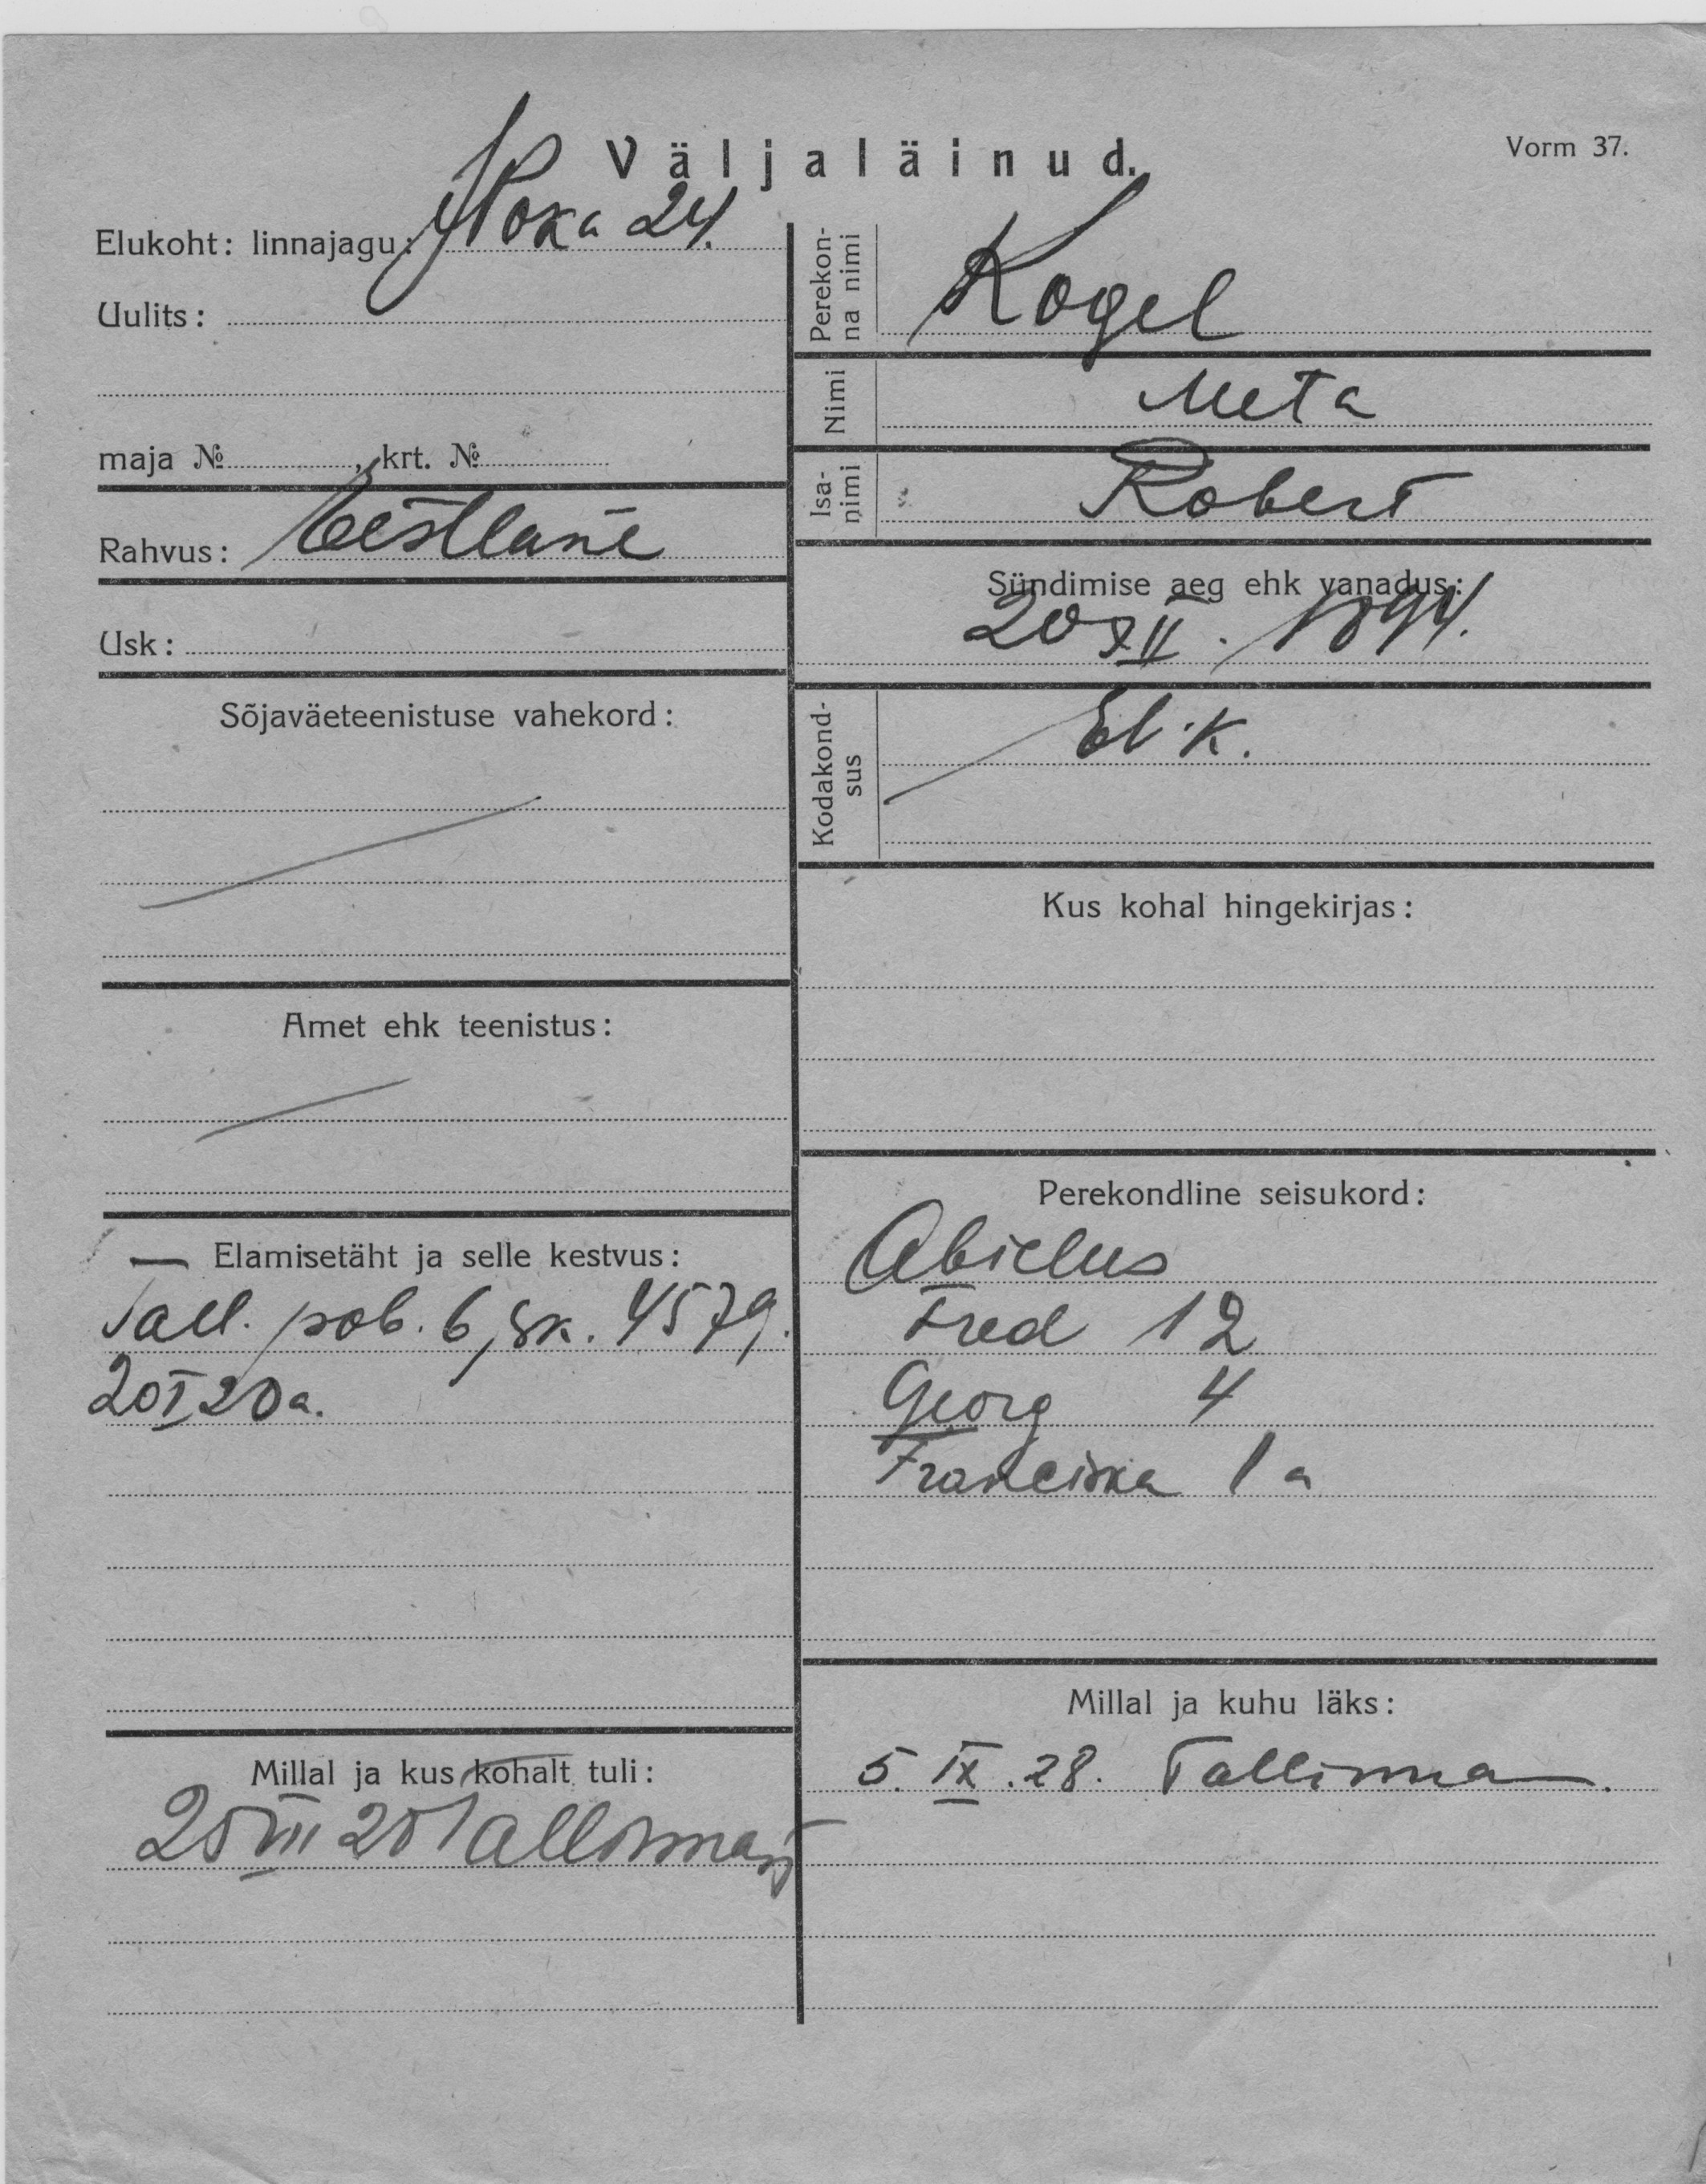 Väljaläinud.
Vorm 37.
Elukoht: linnajagu: 24.
Uulits:
maja № , krt. №
Rahvus: Eestlane
Usk:
Sõjaväeteenistuse vahekord:
Amet ehk teenistus:
— Elamisetäht ja selle kestvus:
Tall. 6, sk. 4579.
20 I 20 a.
Millal ja kus kohalt tuli:
Tallinnast
Perekon-
na nimi
Kogel
Nimi Meta
Isa-
nimi
Robert
Sündimise aeg ehk vanadus:
20 XII. 1894.
Kodakond-
sus
K.
Kus kohal hingekirjas:
Perekondline seisukord:
Abielus
Fred 12
Georg 4
Franciska 1 a
Millal ja kuhu läks:
5. IX. 28. Tallinna.